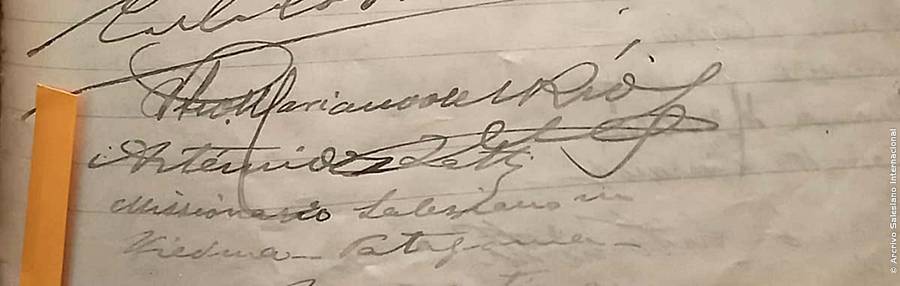 Mariano del Río
Artemide Zatti
Missionario Salesiano in
Viedma - Patagonia -
© Arcrivo Salesiano Internacional